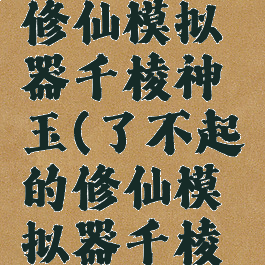 修仙模拟
器千棱神
玉(了不起
的修仙模
拟器千棱